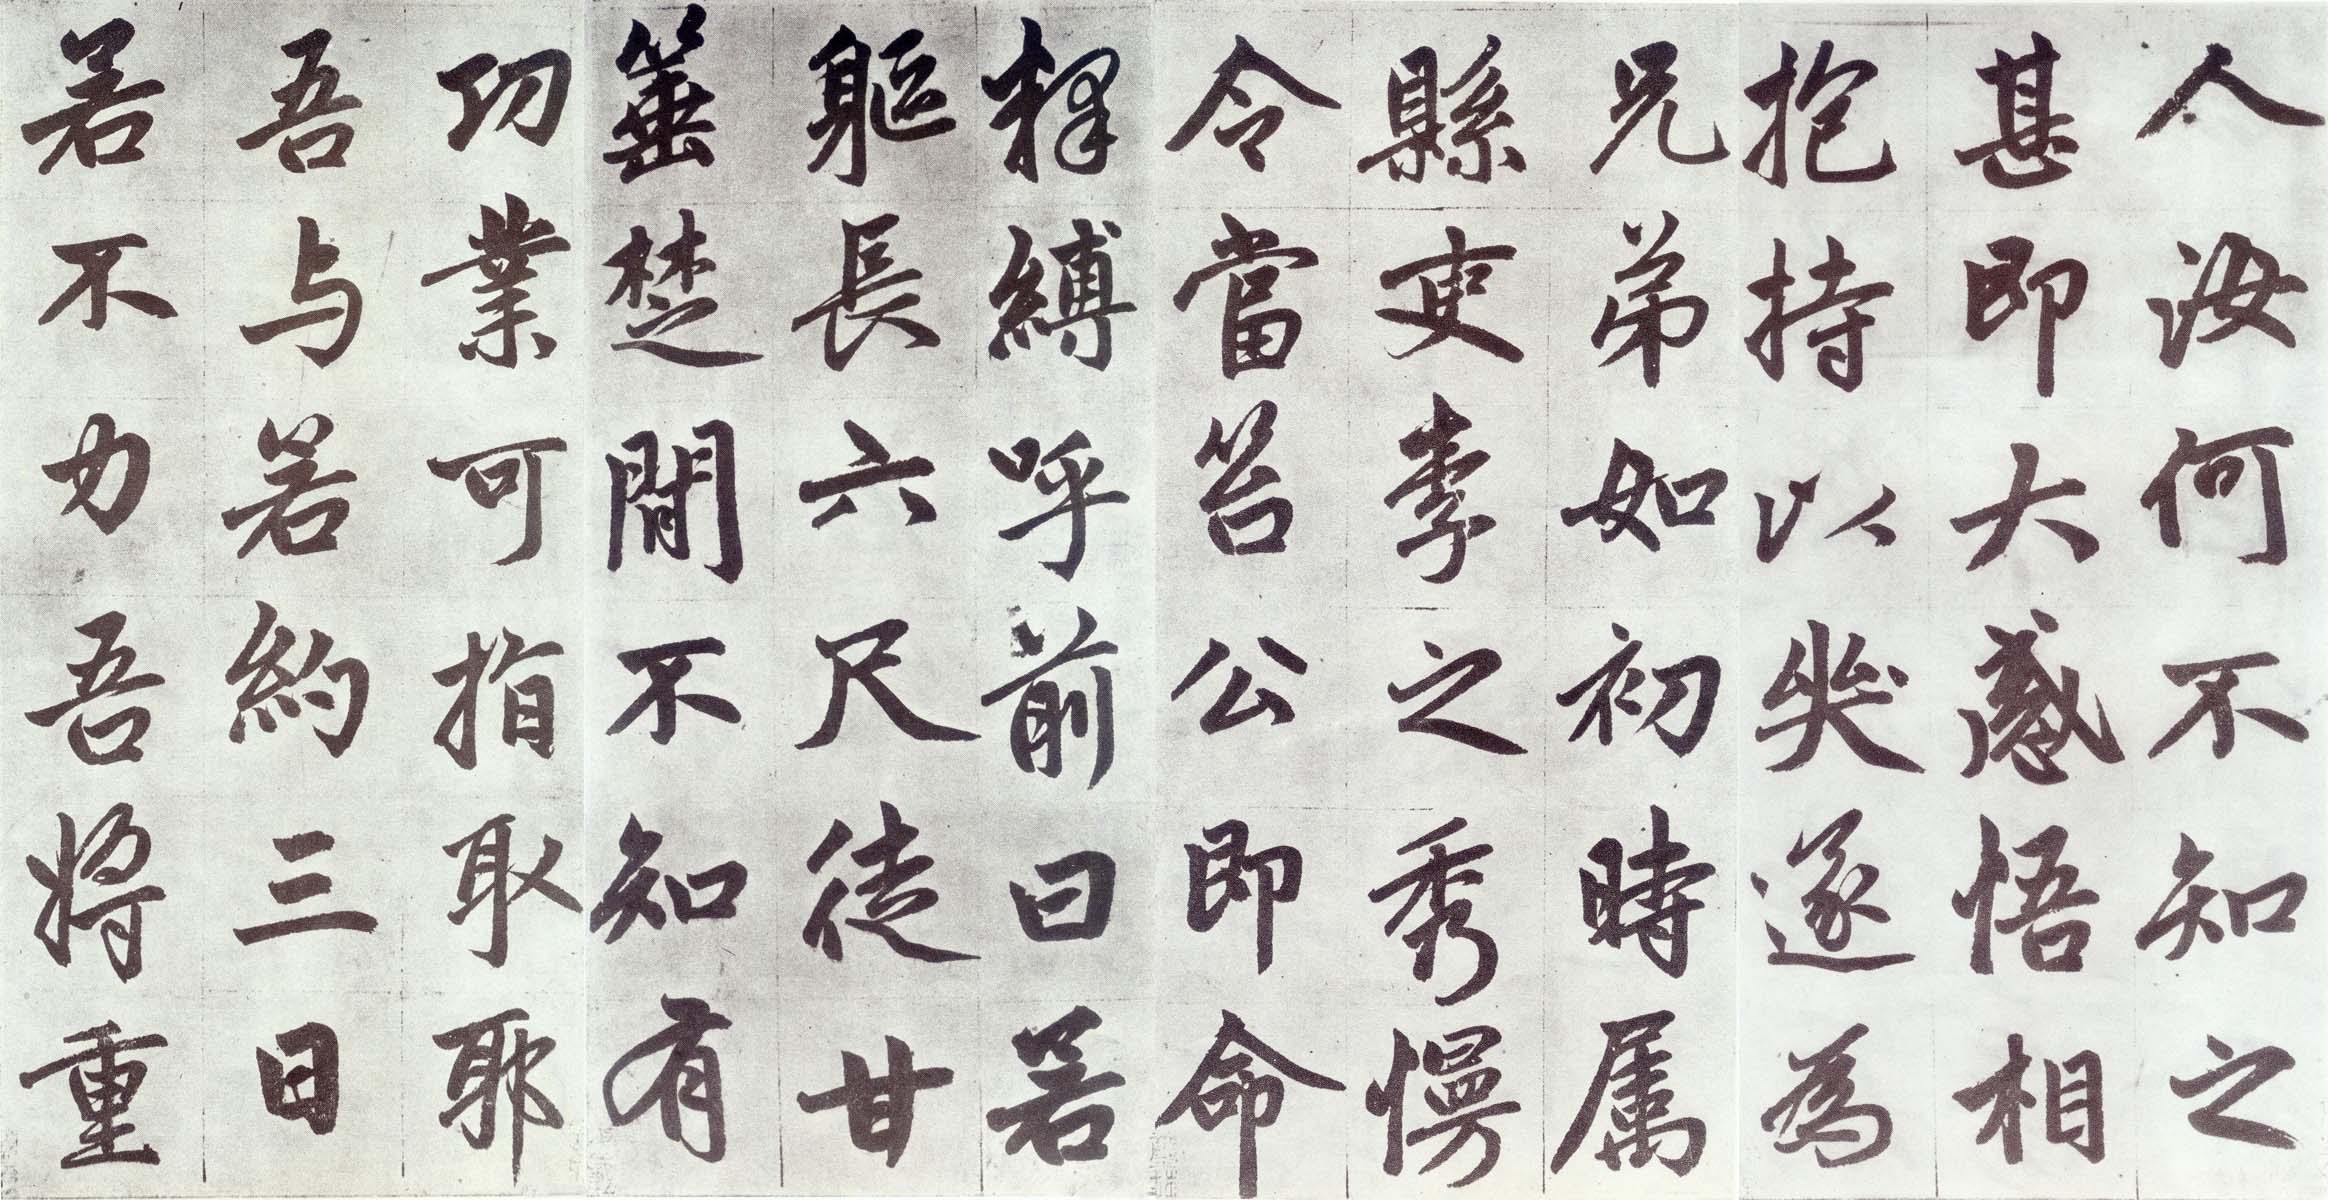 人汝何不知之
甚即大感悟相
抱持以哭遂為
兄弟如初時属
縣吏李之秀慢
令當笞公即命
释縛呼前曰若
軀長六尺徒甘
箠楚間不知有
功業可指取耶
吾与若約三日
若不力吾將重